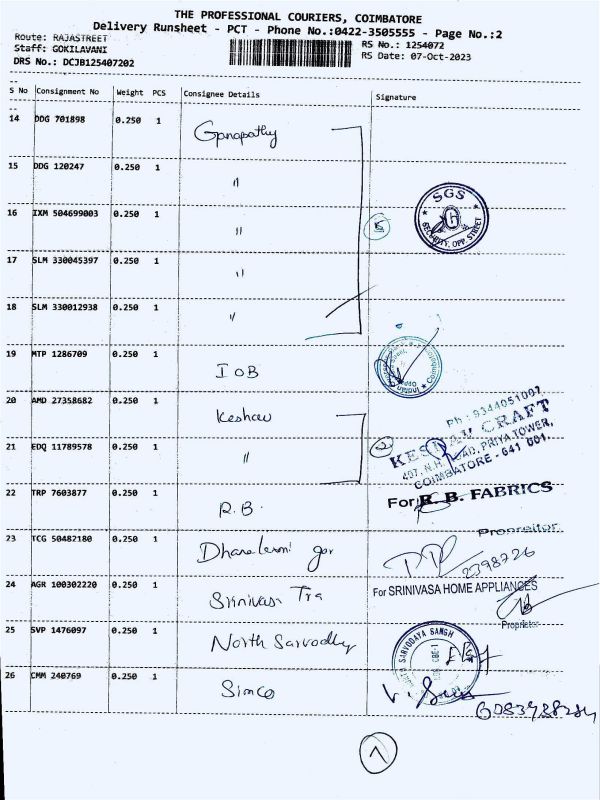 THE PROFESSIONAL COURIERS, COIMBATORE
Delivery Runsheet - PCT - Phone No.:0422-3505555 - Page No.:2
Route: RAJASTREET
Staff: GOKILAVANI
DRS No.: DCJB125407202
RS No.: 1254072
RS Date: 07-Oct-2023
S No Consignment No Weight PCS Consignee Details Signature
14 DDG 701898 0.250 1 Ganapathy
15 DDG 120247 0.250 1 "
16 IXM 504699003 0.250 1 "
5
SGS
SECURITY, OPP. STREET
17 SLM 330045397 0.250 1 "
18 SLM 330012938 0.250 1 "
19 MTP 1286709 0.250 1 IOB
20 AMD 27358682 0.250 1 Keshav
21 EDQ 11789578 0.250 1 "
2
Ph : 9344051007
KESHAV CRAFT
407, N.H. ROAD, PRIYA TOWER,
COIMBATORE - 641 001.
22 TRP 7603877 0.250 1 R.B.
For R. B. FABRICS
Proprietor
23 TCG 50482180 0.250 1
2398726
24 AGR 100302220 0.250 1 Srinivasa Tra
For SRINIVASA HOME APPLIANCES
Proprietor
25 SVP 1476097 0.250 1 North Sarvodhy
SARVODAYA SANGH
26 CMM 240769 0.250 1 Simco